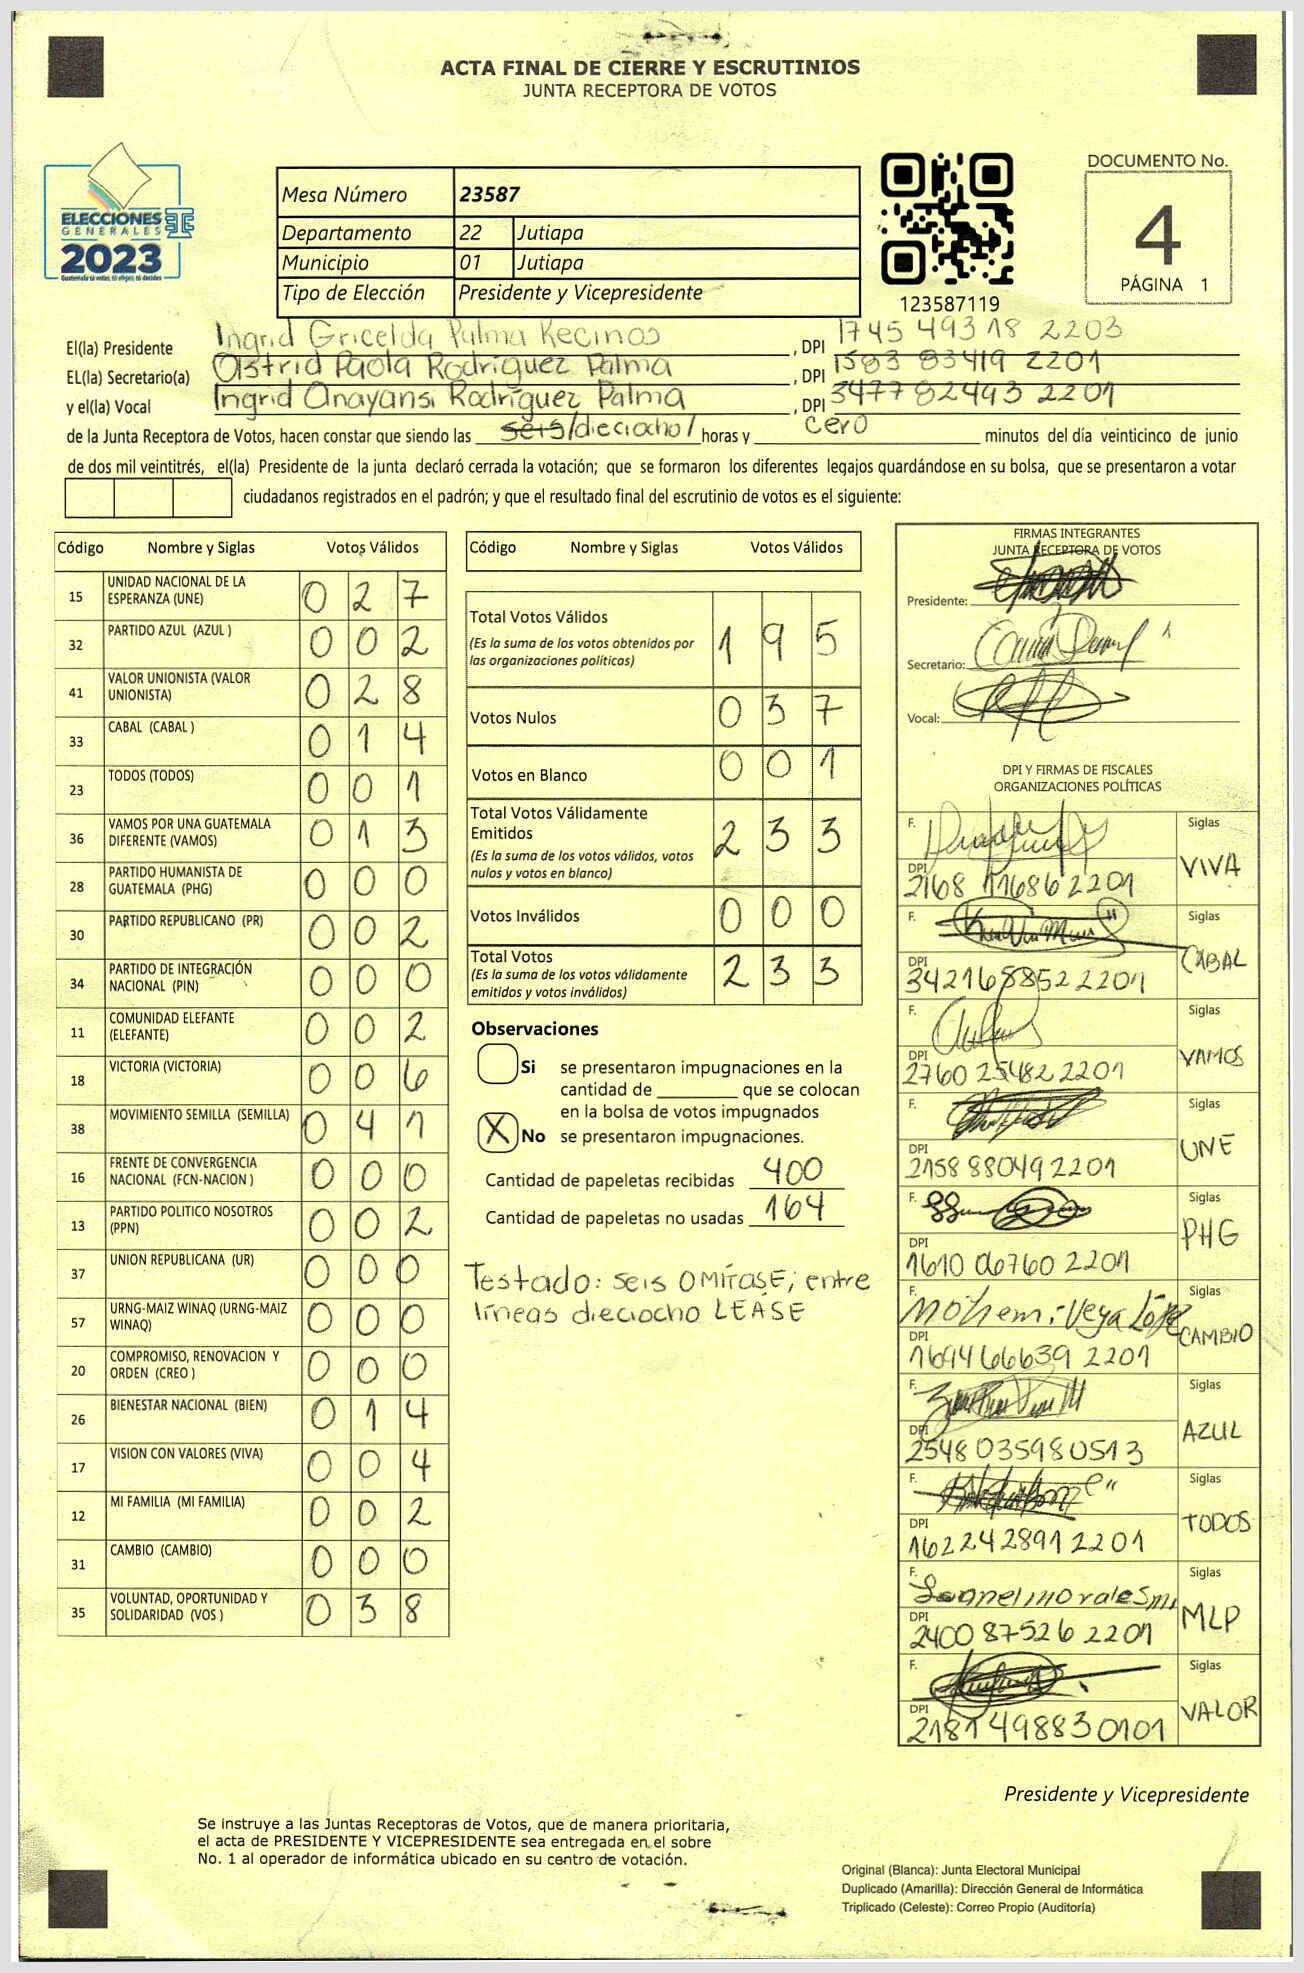 ACTA FINAL DE CIERRE Y ESCRUTINIOS
JUNTA RECEPTORA DE VOTOS
ELECCIONES
GENERALES
2023
Guatemala tú votas, tú eliges, tú decides
Mesa Número 23587
Departamento 22 Jutiapa
Municipio 01 Jutiapa
Tipo de Elección Presidente y Vicepresidente
123587119
DOCUMENTO No.
4
PÁGINA 1
El(la) Presidente Ingrid Gricelda Palma Recinos, DPI 1745 49318 2203
EL(la) Secretario(a) Astrid Paola Rodríguez Palma, DPI 1583 83419 2201
y el(la) Vocal Ingrid Anayansi Rodríguez Palma, DPI 3477 82493 2201
de la Junta Receptora de Votos, hacen constar que siendo las seis/dieciocho/ horas y cero minutos del día veinticinco de junio
de dos mil veintitrés, el(la) Presidente de la junta declaró cerrada la votación; que se formaron los diferentes legajos guardándose en su bolsa, que se presentaron a votar
ciudadanos registrados en el padrón; y que el resultado final del escrutinio de votos es el siguiente:
Código Nombre y Siglas Votos Válidos
15 UNIDAD NACIONAL DE LA ESPERANZA (UNE) 0 2 7
32 PARTIDO AZUL (AZUL ) 0 0 2
41 VALOR UNIONISTA (VALOR UNIONISTA) 0 2 8
33 CABAL (CABAL ) 0 1 4
23 TODOS (TODOS) 0 0 1
36 VAMOS POR UNA GUATEMALA DIFERENTE (VAMOS) 0 1 3
28 PARTIDO HUMANISTA DE GUATEMALA (PHG) 0 0 0
30 PARTIDO REPUBLICANO (PR) 0 0 2
34 PARTIDO DE INTEGRACIÓN NACIONAL (PIN) 0 0 0
11 COMUNIDAD ELEFANTE (ELEFANTE) 0 0 2
18 VICTORIA (VICTORIA) 0 0 6
38 MOVIMIENTO SEMILLA (SEMILLA) 0 4 1
16 FRENTE DE CONVERGENCIA NACIONAL (FCN-NACION ) 0 0 0
13 PARTIDO POLITICO NOSOTROS (PPN) 0 0 2
37 UNION REPUBLICANA (UR) 0 0 0
57 URNG-MAIZ WINAQ (URNG-MAIZ WINAQ) 0 0 0
20 COMPROMISO, RENOVACION Y ORDEN (CREO ) 0 0 0
26 BIENESTAR NACIONAL (BIEN) 0 1 4
17 VISION CON VALORES (VIVA) 0 0 4
12 MI FAMILIA (MI FAMILIA) 0 0 2
31 CAMBIO (CAMBIO) 0 0 0
35 VOLUNTAD, OPORTUNIDAD Y SOLIDARIDAD (VOS ) 0 3 8
Código Nombre y Siglas Votos Válidos
Total Votos Válidos 1 9 5
(Es la suma de los votos obtenidos por
las organizaciones políticas)
Votos Nulos 0 3 7
Votos en Blanco 0 0 1
Total Votos Válidamente
Emitidos 2 3 3
(Es la suma de los votos válidos, votos
nulos y votos en blanco)
Votos Inválidos 0 0 0
Total Votos 2 3 3
(Es la suma de los votos válidamente
emitidos y votos inválidos)
Observaciones
Si se presentaron impugnaciones en la
cantidad de ________ que se colocan
en la bolsa de votos impugnados
X No se presentaron impugnaciones.
Cantidad de papeletas recibidas 400
Cantidad de papeletas no usadas 164
Testado: seis OMÍTASE; entre
líneas dieciocho LEASE
FIRMAS INTEGRANTES
JUNTA RECEPTORA DE VOTOS
Presidente:
Secretario:
Vocal:
DPI Y FIRMAS DE FISCALES
ORGANIZACIONES POLÍTICAS
F. Siglas
DPI 2168 11686 2201 VIVA
F. Siglas
DPI 342168852 2201 CABAL
F. Siglas
DPI 2760 25482 2201 VAMOS
F. Siglas
DPI 2158 88049 2201 UNE
F. Siglas
DPI 1610 06760 2201 PHG
F. Mohemi Vega López Siglas
DPI 1694 66639 2201 CAMBIO
F. Siglas
DPI 2548 03598 0513 AZUL
F. Siglas
DPI 1622428912201 TODOS
F. Leonel Morales M. Siglas
DPI 2400 87526 2201 MLP
F. Siglas
DPI 2181 49883 0101 VALOR
Presidente y Vicepresidente
Se instruye a las Juntas Receptoras de Votos, que de manera prioritaria,
el acta de PRESIDENTE Y VICEPRESIDENTE sea entregada en el sobre
No. 1 al operador de informática ubicado en su centro de votación.
Original (Blanca): Junta Electoral Municipal
Duplicado (Amarilla): Dirección General de Informática
Triplicado (Celeste): Correo Propio (Auditoría)